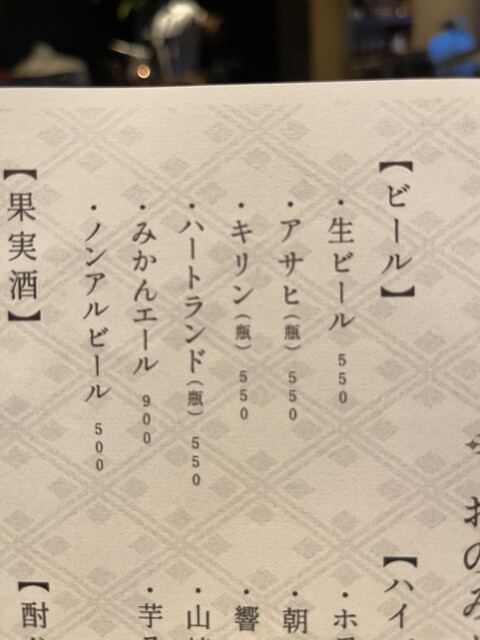 おのみ
【ビール】
・生ビール 550
・アサヒ（瓶） 550
・キリン（瓶） 550
・ハートランド（瓶） 550
・みかんエール 900
・ノンアルビール 500
【果実酒】
【ハイ
・ホ
・朝
・響
・山
・芋
【酎